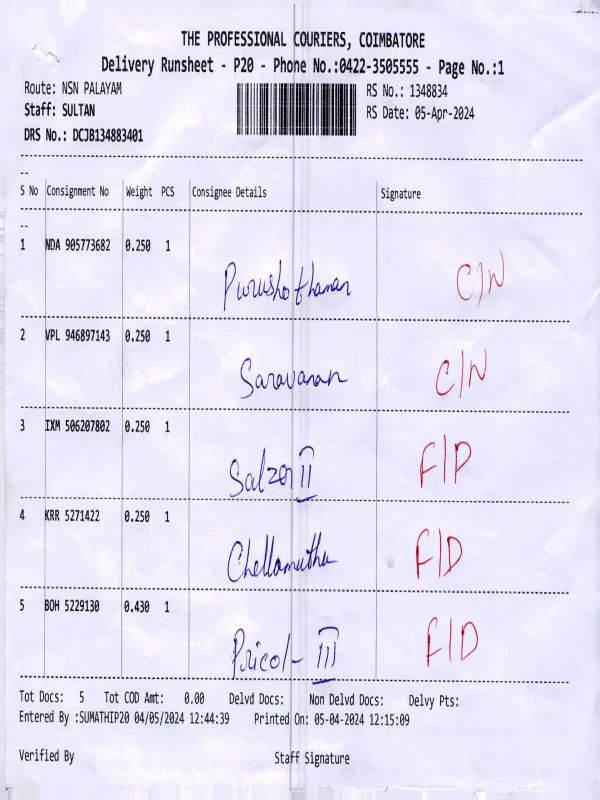 THE PROFESSIONAL COURIERS, COIMBATORE
Delivery Runsheet - P20 - Phone No.:0422-3505555 - Page No.:1
Route: NSN PALAYAM RS No.: 1348834
Staff: SULTAN RS Date: 05-Apr-2024
DRS No.: DCJB134883401
--
S No Consignment No Weight PCS Consignee Details Signature
--
1 NDA 905773682 0.250 1
Purushothaman C/N
2 VPL 946897143 0.250 1
Saravanan C/N
3 IXM 506207802 0.250 1
Salzer II F/D
4 KRR 5271422 0.250 1
Chellamuthu F/D
5 BOH 5229130 0.430 1
Pricol - III F/D
Tot Docs: 5 Tot COD Amt: 0.00 Delvd Docs: Non Delvd Docs: Delvy Pts:
Entered By :SUMATHIP20 04/05/2024 12:44:39 Printed On: 05-04-2024 12:15:09
Verified By Staff Signature